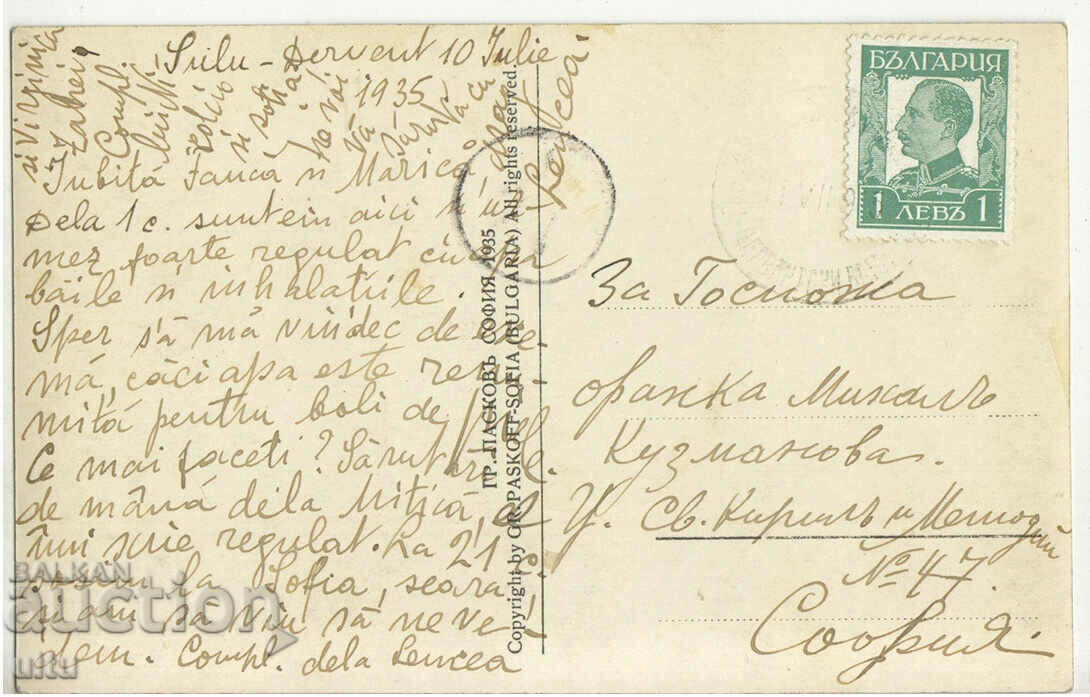 Sulu-Dervent 10 Iulie
1935
Iubită Fancă și Marică,
Dela 1 c. suntem aici și ur-
mez foarte regulat cu
băile și inhalațiile.
Sper să mă vindec de
mă, căci apa este renu-
mită pentru boli de piele.
Ce mai faceți? Sărutări
de mână dela Mitică,
îmi scrie regulat. La 21 c.
la Sofia, seara
și am să viu să neve-
dem. Compl. dela Lencea
și Virginica
Zaharia
Compl.
și soția
Ne văi
Vă sărută cu
Lencea
ГР. ПАСКОВЪ СОФИЯ 1935
Copyright by GR. PASKOFF-SOFIA (BULGARIA) All rights reserved.
БЪЛГАРИЯ
1 ЛЕВЪ 1
За Госпожа
Фанка Михаилъ
Кузманова.
Ц. Св. Кирилъ и Методий
№ 47.
София.
BALKAN
auction
uitu